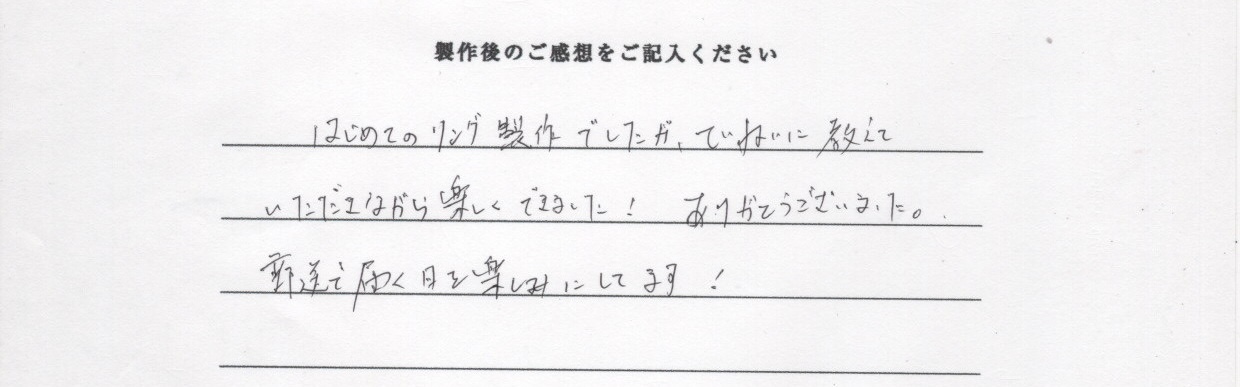 製作後のご感想をご記入ください
はじめてのリング製作でしたが、ていねいに教えて
いただきながら楽しくできました! ありがとうございました。
郵送で届く日を楽しみにしてます!